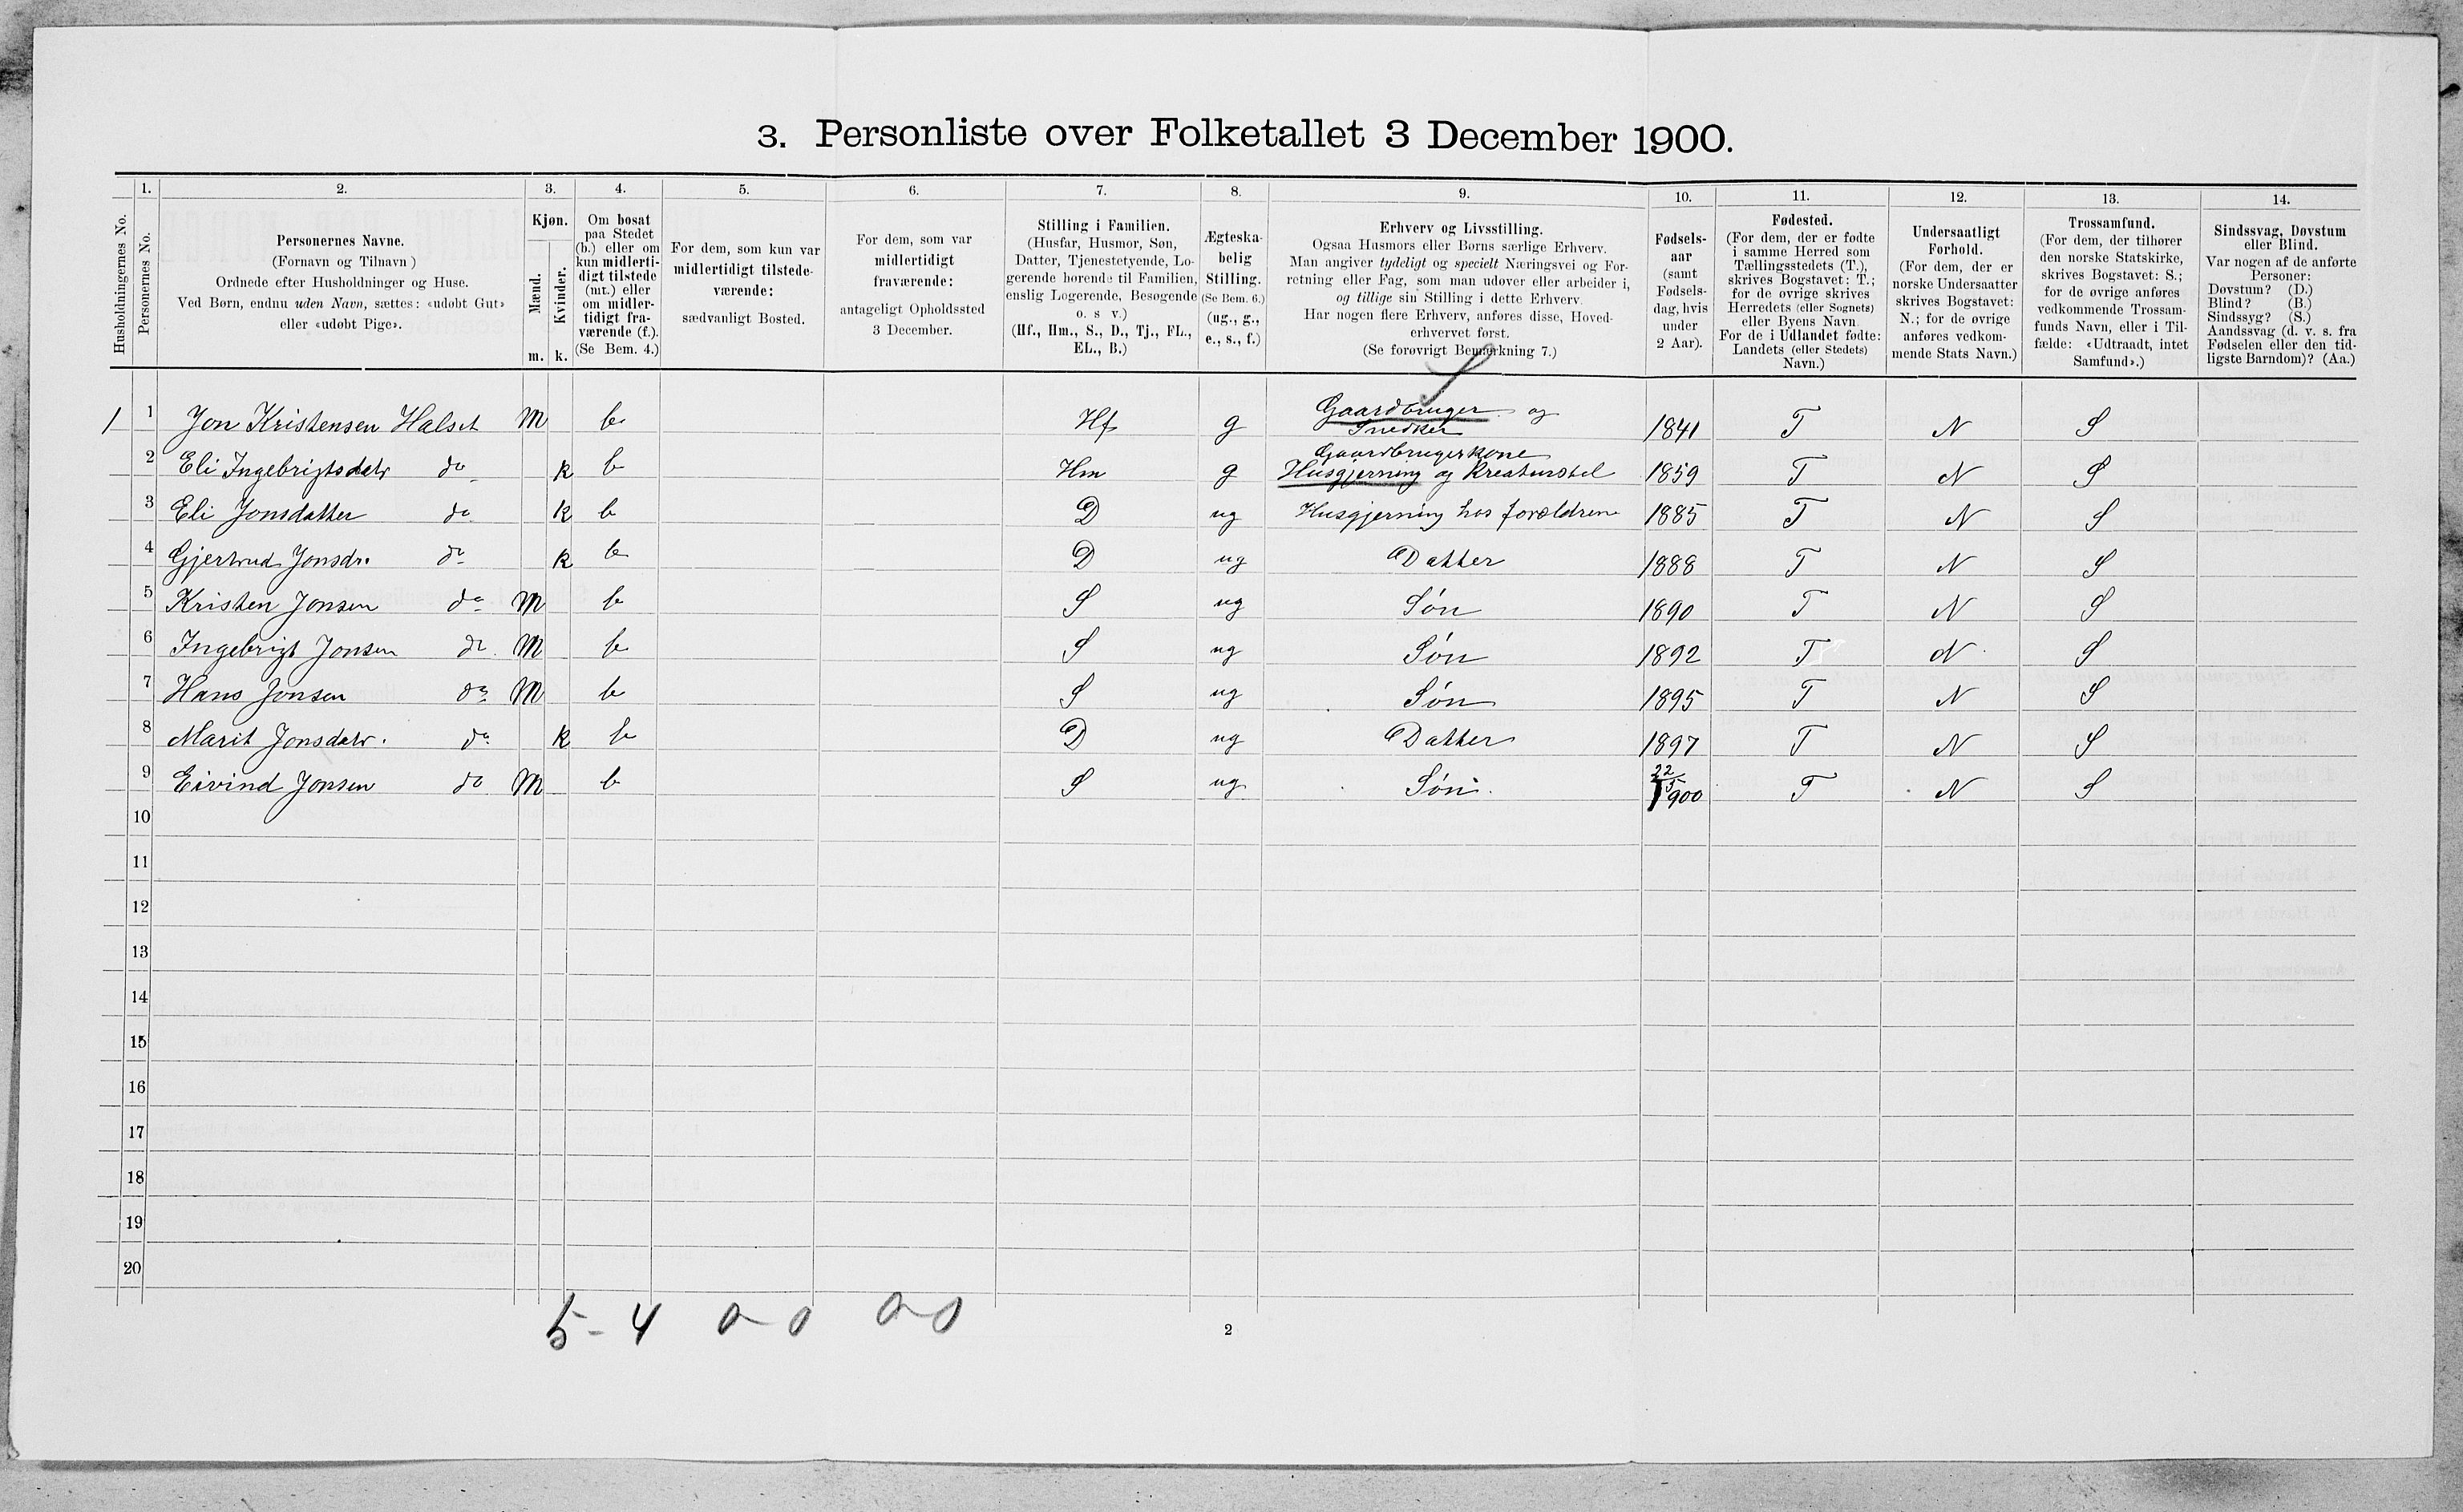 3. Personliste over Folketallet 3 December 1900.
1. 2. 3. 4. 5. 6. 7. 8. 9. 10. 11. 12. 13. 14.
Husholdningernes No.
Personernes No.
Personernes Navne.
(Fornavn og Tilnavn )
Ordnede efter Husholdninger og Huse.
Ved Børn, endnu uden Navn, sættes: «udøbt Gut»
eller «udøbt Pige».
Kjøn.
Mænd.
Kvinder.
m. k.
Om bosat
paa Stedet
(b.) eller om
kun midlerti-
digt tilstede
(mt.) eller
om midler-
tidigt fra-
værende (f.).
(Se Bem. 4.)
For dem, som kun var
midlertidigt tilstede-
værende:
sædvanligt Bosted.
For dem, som var
midlertidigt
fraværende:
antageligt Opholdssted
3 December.
Stilling i Familien.
(Husfar, Husmor, Søn,
Datter, Tjenestetyende, Lo-
gerende hørende til Familien,
enslig Logerende, Besøgende
o. s v.)
(Hf., Hm., S., D., Tj., FL.,
EL., B.)
Ægteska-
belig
Stilling.
(Se Bem. 6.)
(ug., g.,
e., s., f.)
Erhverv og Livsstilling.
Ogsaa Husmors eller Børns særlige Erhverv.
Man angiver tydeligt og specielt Næringsvei og For-
retning eller Fag, som man udøver eller arbeider i,
og tillige sin Stilling i dette Erhverv.
Har nogen flere Erhverv, anføres disse, Hoved-
erhvervet først.
(Se forøvrigt Bemærkning 7.)
Fødsels-
aar
(samt
Fødsels-
dag, hvis
under
2 Aar).
Fødested.
(For dem, der er fødte
i samme Herred som
Tællingsstedets (T.),
skrives Bogstavet: T.;
for de øvrige skrives
Herredets (eller Sognets)
eller Byens Navn.
For de i Udlandet fødte:
Landets (eller Stedets)
Navn.)
Undersaatligt
Forhold.
(For dem, der er
norske Undersaatter
skrives Bogstavet:
N.; for de øvrige
anføres vedkom-
mende Stats Navn.)
Trossamfund.
(For dem, der tilhører
den norske Statskirke,
skrives Bogstavet: S.;
for de øvrige anføres
vedkommende Trossam-
funds Navn, eller i Til-
fælde: «Udtraadt, intet
Samfund».)
Sindssvag, Døvstum
eller Blind.
Var nogen af de anførte
Personer:
Døvstum? (D.)
Blind? (B.)
Sindssyg? (S.)
Aandssvag (d. v. s. fra
Fødselen eller den tid-
ligste Barndom)? (Aa.)
S
1 1 Jon Kristensen Halset M b Hf g Gaardbruger og Snedker 1841 T N S
Gaardbrugerkone
2 Eli Ingebrigtsdatr do k b Hm g Husgjerning og Kreaturstel 1859 T N S
3 Eli Jonsdatter do k b D ug Husgjerning hos forældrene 1885 T N S
4 Gjertrud Jonsdr. do k b D ug Datter 1888 T N S
5 Kristen Jonsen do M b S ug Søn 1890 T N S
6 Ingebrigt Jonsen do M b S ug Søn 1892 T N S
7 Hans Jonsen do M b S ug Søn 1895 T N S
8 Marit Jonsdatr. do k b D ug Datter 1897 T N S
9 Eivind Jonsen do M b S ug Søn 22/5 1900 T N S
10
11
12
13
14
15
16
17
18
19
20
5 - 4 0 - 0 0 - 0
2